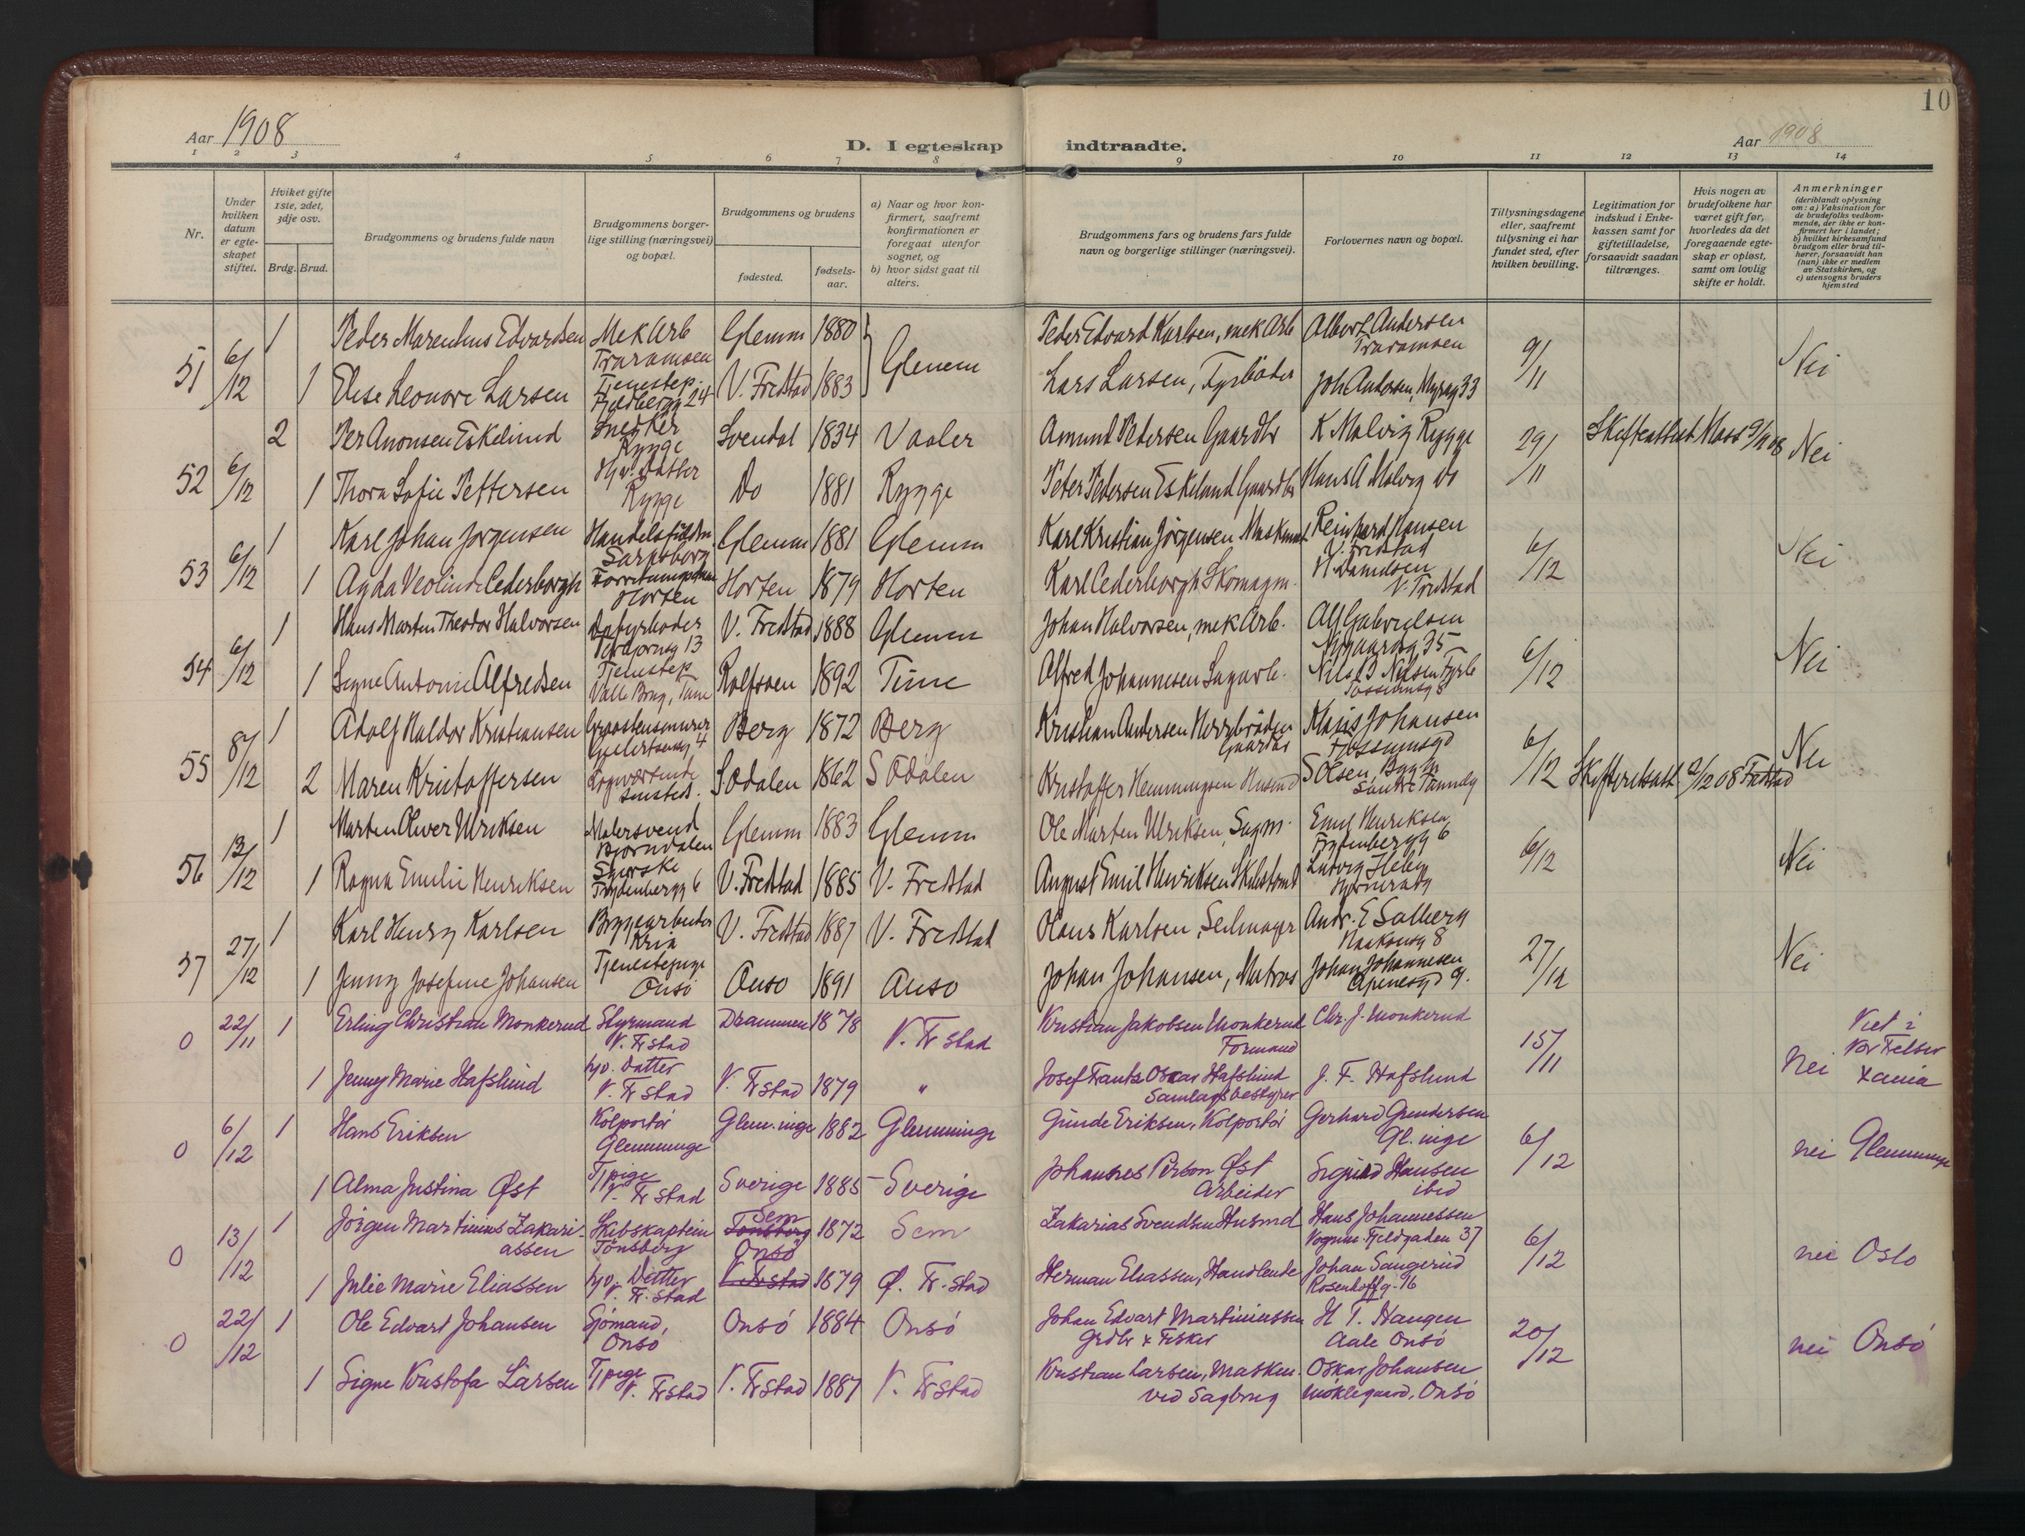 10
Aar 1908
D. I egteskap indtraadte.
Aar 1908
1 2 3 4 5 6 7 8 9 10 11 12 13 14
Nr.
Under hvilken datum er egteskapet stiftet.
Hviket gifte 1ste, 2det, 3dje osv.
Brdg. Brud.
Brudgommens og brudens fulde navn
Brudgommens borgerlige stilling (næringsvei) og bopæl.
Brudgommens og brudens
fødested.
fødselsaar.
a) Naar og hvor konfirmert, saafremt konfirmationen er foregaat utenfor sognet, og
b) hvor sidst gaat til alters.
Brudgommens fars og brudens fars fulde navn og borgerlige stillinger (næringsvei).
Forlovernes navn og bopæl.
Tillysningsdagene eller, saafremt tillysning ei har fundet sted, efter hvilken bevilling.
Legitimation for indskud i Enkekassen samt for giftetilladelse, forsaavidt saadan tiltrænges.
Hvis nogen av brudefolkene har været gift før, hvorledes da det foregaaende egteskap er opløst, samt om lovlig skifte er holdt.
Anmerkninger (deriblandt oplysning om: a) Vaksination for de brudefolks vedkommende, der ikke er konfirmert her i landet; b) hvilket kirkesamfund brudgom eller brud tilhører, forsaavidt han (hun) ikke er medlem av Statskirken, og c) utensogns bruders hjemsted
51 6/12 1 Peder Marenius Edvardsen Mek Arb Traramsen Glemm 1880 Glemm Peder Edvard Karlsen, mek Arb Albert Andersen Traramsen 9/11 Nei
1 Elise Leonore Larsen Tjenestep. Fjeldbergg 24 V. Fredstad 1883 Lars Larsen, Fyrbøder Joh Andersen, Myrag 33
52 6/12 2 Per Anonsen Eskelund Snedker Rygge Svendal 1834 Vaaler Amund Pedersen Gaardbr K Malvig Rygge 29/11 Skifteattest Moss 9/11 08 Nei
1 Thora Sofie Pettersen Hjv. Datter Rygge Do 1881 Rygge Peter Pedersen Eskelund Gaardbr Hans A Malvig Do
53 6/12 1 Karl Johan Jørgensen Sarpsborg Glemm 1881 Glemm Karl Kristian Jørgensen Maskinist Reinhard Hansen V. Fredstad 6/12 Nei
1 Agda Cederborgh Horten Horten 1879 Horten Karl Cederborgh Skomagm. H. Danielsen V. Fredstad
54 6/12 1 Hans Martin Theodor Halvorsen V. Fredstad 1888 Glemm Johan Halvorsen, mek Arb. Alf Gabrielsen Nygaardsg 35 6/12 Nei
1 Signe Antonie Alfredsen Tjenestep Valle Brug, Tune Rolfsøen 1892 Tune Alfred Johannesen Sagarb. Nils B Nilsen Fyrb
55 8/12 1 Adolf Haldor Kristiansen Graastensmurer Berg 1872 Berg Kristian Andersen Gaardbr Klaus Johansen 6/12 Nei
2 Maren Kristoffersen S Ødalen 1862 S Ødalen Kristoffer Hemmingsen Husmd S Olsen, Skifteretsatt 2/12 08 Fredstad
56 13/12 1 Marten Oliver Ulriksen Malersvend Bjørndalen Glemm 1883 Glemm Ole Marten Ulriksen, Sagm. Emil Henriksen, Frydenbergg 6 6/12 Nei
1 Ragna Emilie Henriksen Syerske Frydenbergg 6 V. Fredstad 1885 V. Fredstad August Emil Henriksen Ludvig Heleg
57 27/12 1 Karl Henry Karlsen Bryggearbeider Kria V. Fredstad 1887 V. Fredstad Olaus Karlsen, Seilmager Andr. E Solberg Haakonsg 8 27/12 Nei
1 Jenny Josefine Johansen Tjenestepige Onsø Onsø 1891 Onsø Johan Johansen, Matros Johan Johannesen 9.
0 22/11 1 Erling Christian Monkerud Styrmand V. Fr stad Drammen 1878 V. Fr stad Kristian Jakobsen Monkerud Formand Chr. J. Monkerud 15/11 Nei Viet i Vor Frelser Xania
1 Jenny Marie Hafslund hjv. Datter V. Fr stad V. Fr stad 1879 " Josef Frantz Oscar Hafslund Samlagsbestyrer J. F. Hafslund
0 6/12 1 Hans Eriksen Kolportør Glemminge Glem.inge 1882 Glemminge Gunde Eriksen, Kolportør Gerhard Gundersen Gl.inge 6/12 nei Glemminge
1 Alma Justina Øst Tj pige V. Fr stad Sverige 1885 Sverige Johannes Person Øst Arbeider Sigurd Hansen ibid
0 13/12 1 Jörgen Martinius Zakariassen Skibskaptein Tönsberg Tönsberg Sem 1872 Sem Zakarias Svendsen Husmd Hans Johannessen Vognm. Fjeldgaden 37 6/12 nei Oslo
1 Julie Marie Eliassen hjv. Datter V. Fr. stad Onsö V. Fr stad 1879 Ø. Fr. stad Herman Eliassen, Handlende Johan Sangerud Rosenhoffg. 16
0 22/12 1 Ole Edvart Johansen Sjömand, Onsö Onsö 1884 Onsö Johan Edvart Martiniussen Grdbr & Fisker H T. Haugen Aale Onsö 20/12 nei Onsö
1 Signe Kristofa Larsen Tj pige V. Fr stad V. Fr stad 1887 V. Fr stad Kristian Larsen, Maskin. ved Sagbrug Oskar Johansen Möklegaard, Onsö